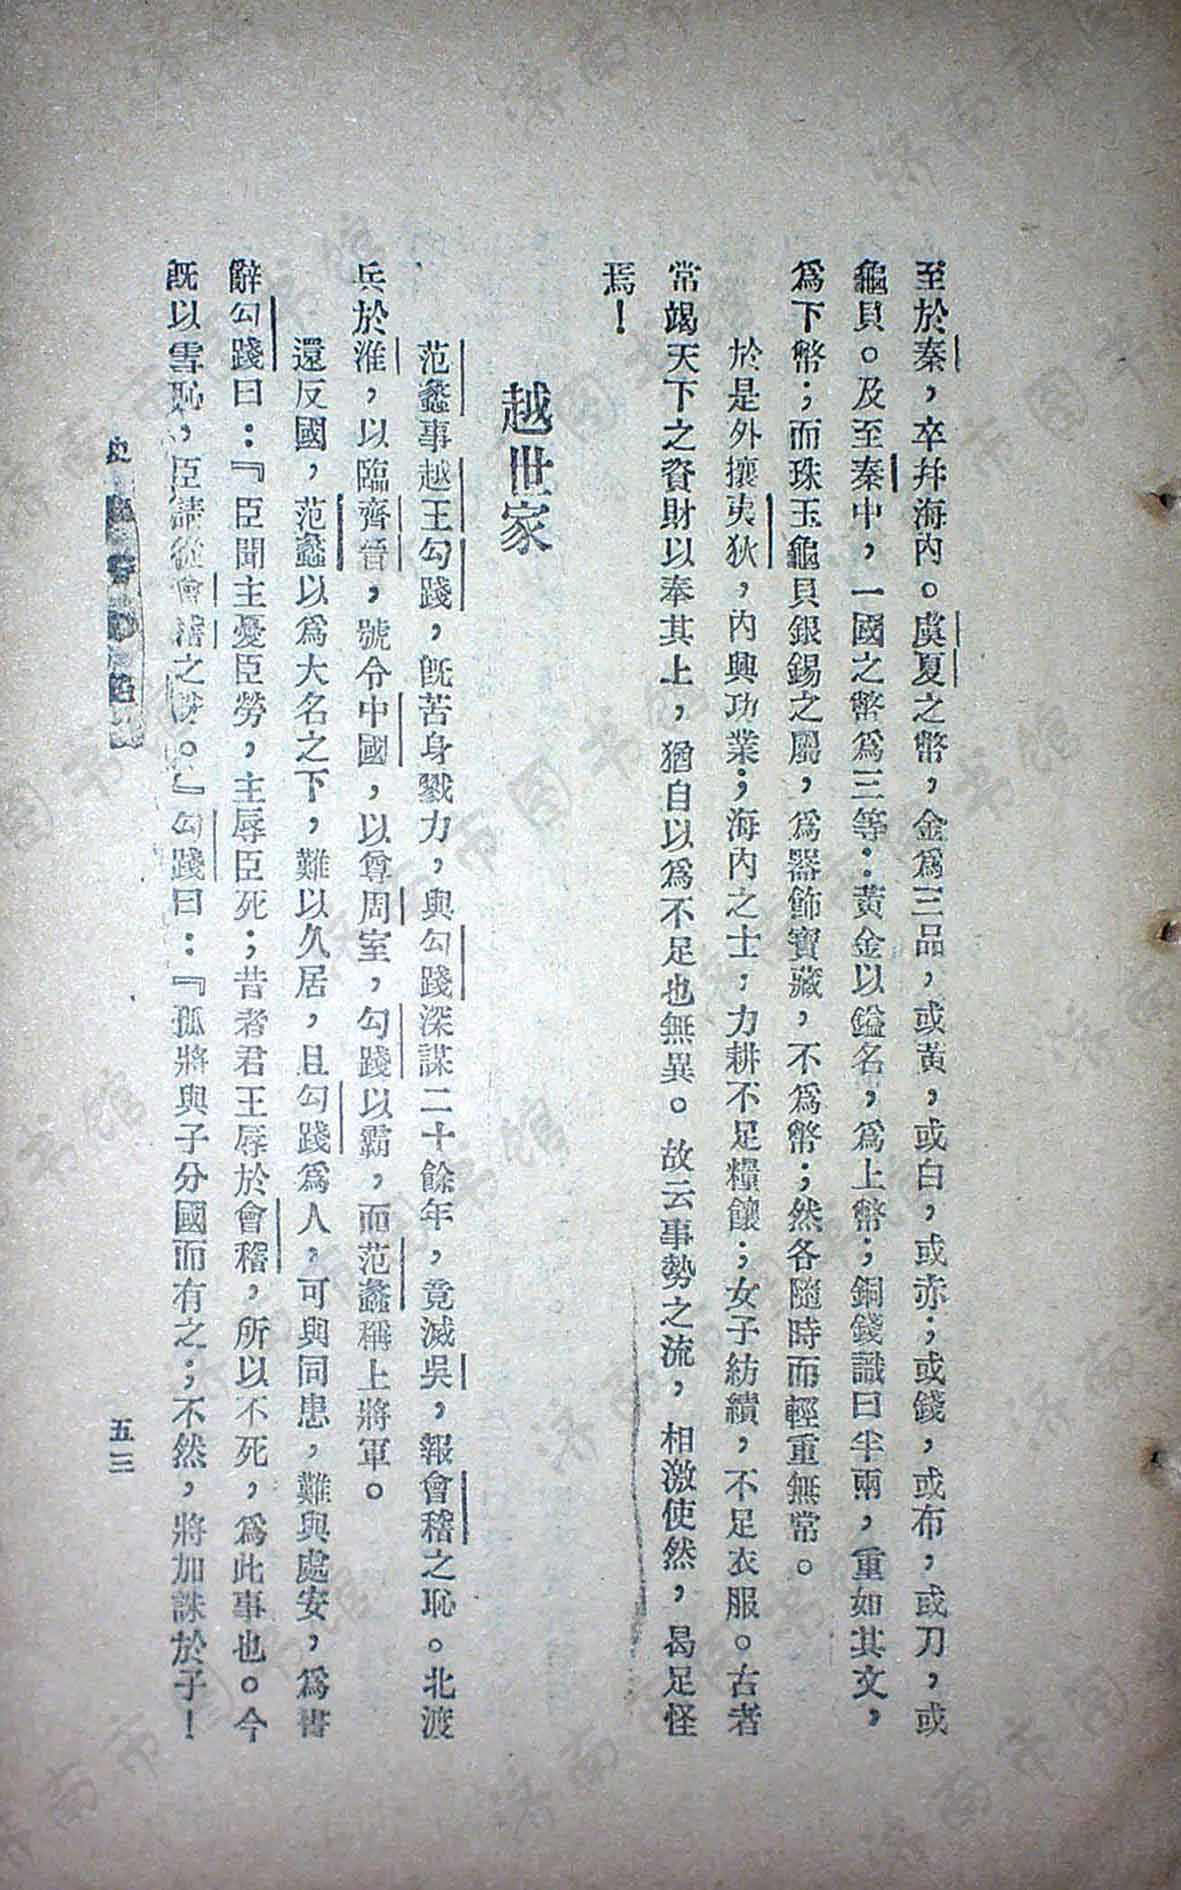 至於秦，卒幷海內。虞夏之幣，金爲三品，或黃，或白，或赤；或錢，或布，或刀，或
龜貝。及至秦中，一國之幣爲三等：黃金以鎰名，爲上幣；銅錢識曰半兩，重如其文，
爲下幣；而珠玉龜貝銀錫之屬，爲器飾寶藏，不爲幣；然各隨時而輕重無常。
於是外攘夷狄，內興功業；海內之士，力耕不足糧饟；女子紡績，不足衣服。古者
常竭天下之資財以奉其上，猶自以爲不足也無異。故云事勢之流，相激使然，曷足怪
焉！
越世家
范蠡事越王勾踐，旣苦身戮力，與勾踐深謀二十餘年，竟滅吳，報會稽之恥。北渡
兵於淮，以臨齊晉，號令中國，以尊周室，勾踐以霸，而范蠡稱上將軍。
還反國，范蠡以爲大名之下，難以久居，且勾踐爲人，可與同患，難與處安，爲書
辭勾踐曰：『臣聞主憂臣勞，主辱臣死；昔者君王辱於會稽，所以不死，爲此事也。今
旣以雪恥，臣請從會稽之誅。』勾踐曰：『孤將與子分國而有之；不然，將加誅於子！
五三
濟南市图书馆